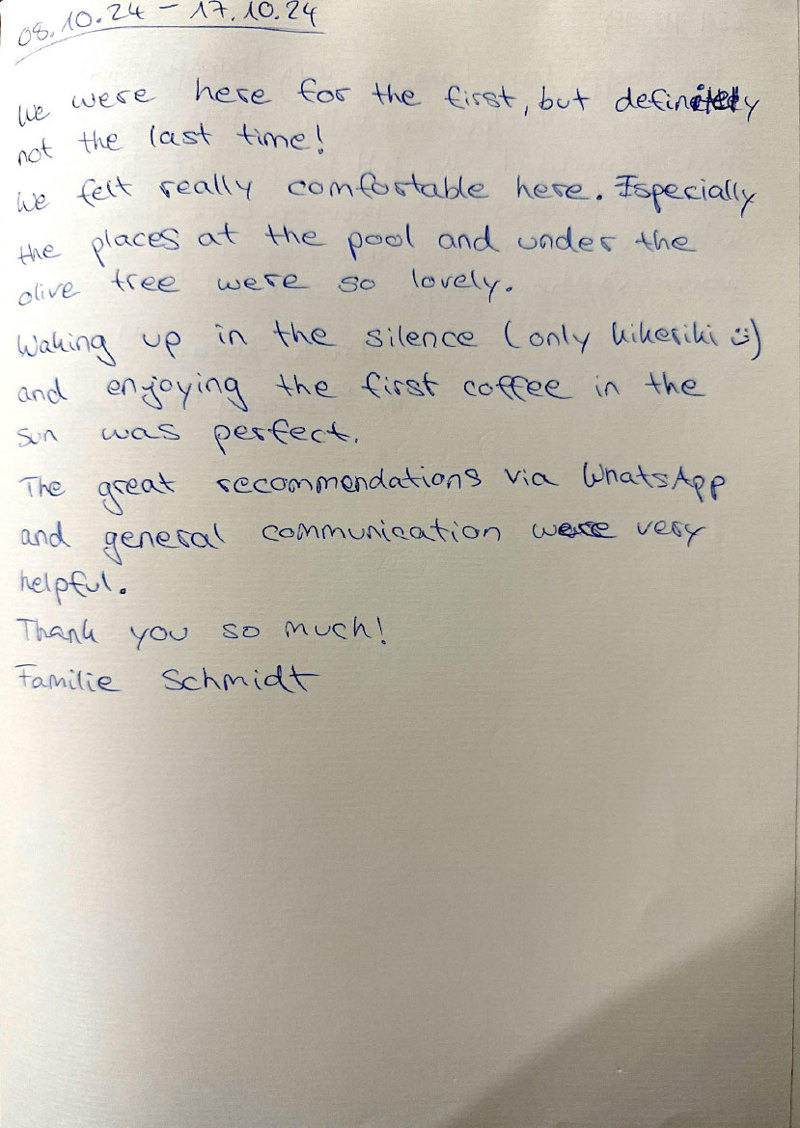 08.10.24 – 17.10.24
We were here for the first, but definitely
not the last time!
We felt really comfortable here. Especially
the places at the pool and under the
olive tree were so lovely.
Waking up in the silence (only kikeriki ü)
and enjoying the first coffee in the
sun was perfect.
The great recommendations via WhatsApp
and general communication were very
helpful.
Thank you so much!
Familie Schmidt